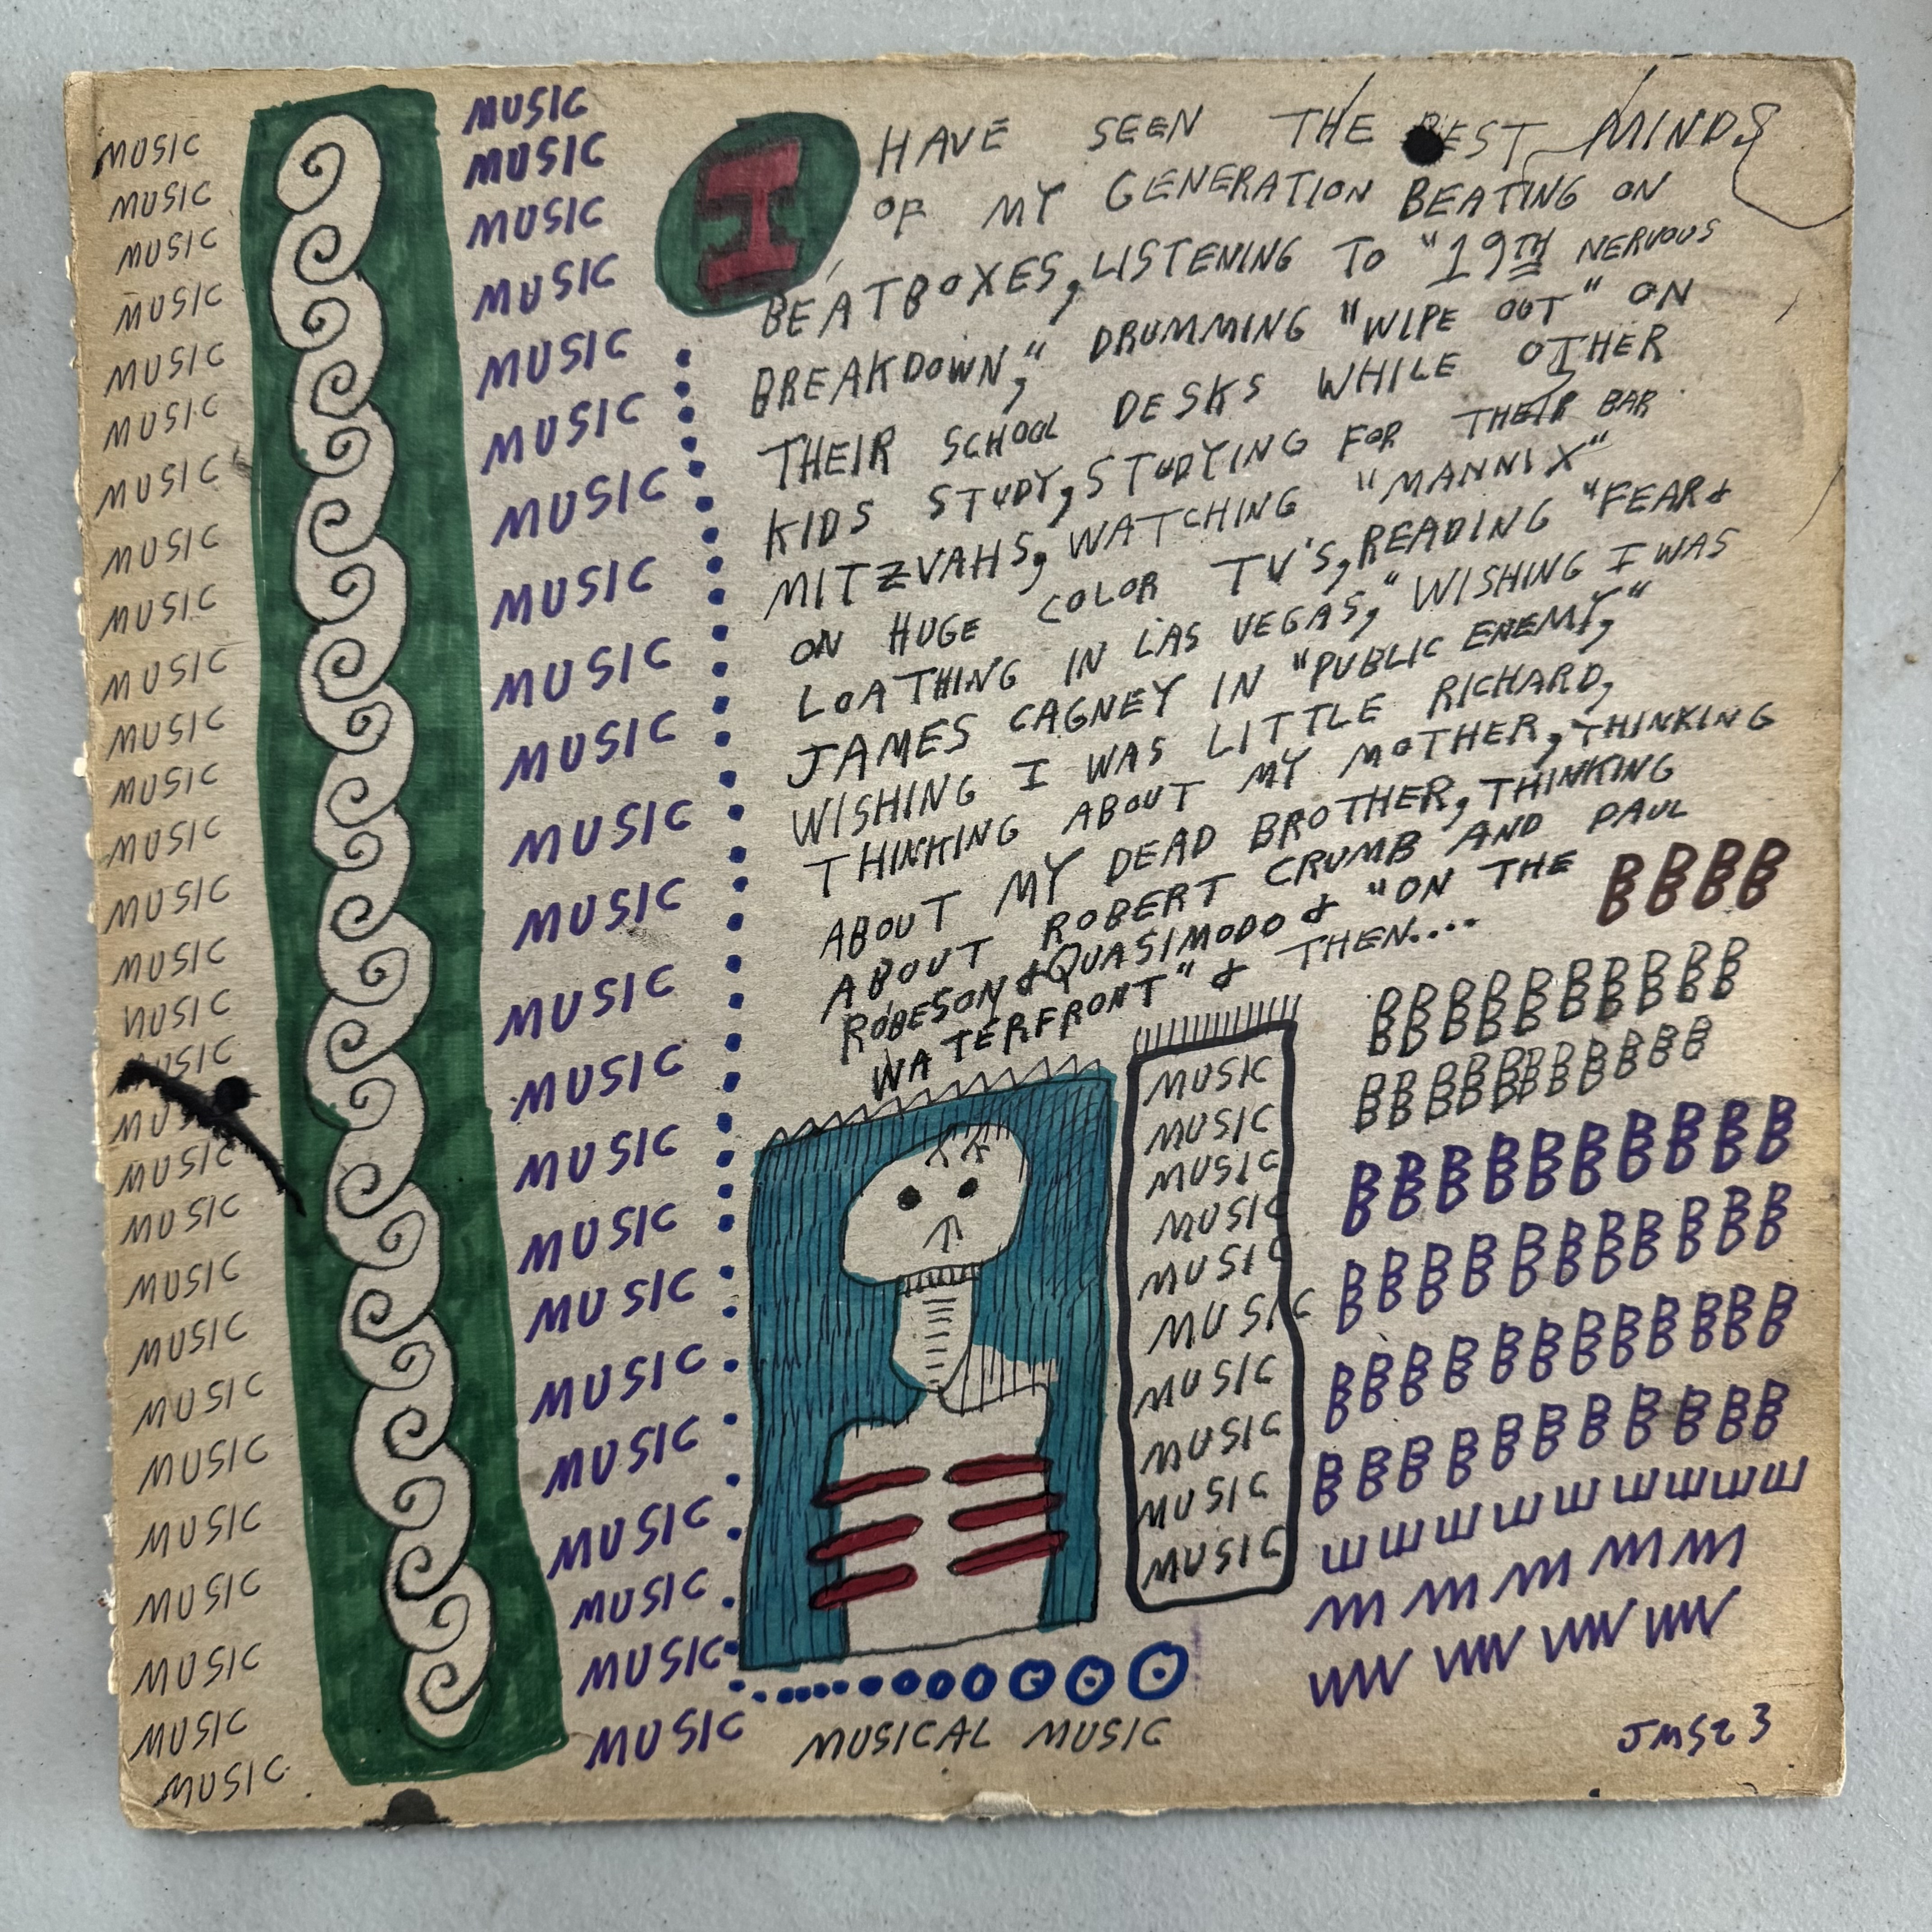 MUSIC
MUSIC
MUSIC
MUSIC
MUSIC
MUSIC
MUSIC
MUSIC
MUSIC
MUSIC
MUSIC
MUSIC
MUSIC
MUSIC
MUSIC
MUSIC
MUSIC
MUSIC
MUSIC
MUSIC
MUSIC
MUSIC
MUSIC
MUSIC
MUSIC
MUSIC
MUSIC
MUSIC
MUSIC
MUSIC
MUSIC
MUSIC
MUSIC
MUSIC
MUSIC
MUSIC
MUSIC
MUSIC
MUSIC
MUSIC
MUSIC
MUSIC
MUSIC
MUSIC
MUSIC
MUSIC
MUSIC
MUSIC
MUSIC
MUSIC
MUSIC
MUSIC
I HAVE SEEN THE BEST MINDS
OF MY GENERATION BEATING ON
BEATBOXES, LISTENING TO "19TH NERVOUS
BREAKDOWN," DRUMMING "WIPE OUT" ON
THEIR SCHOOL DESKS WHILE OTHER
KIDS STUDY, STUDYING FOR THEIR BAR
MITZVAHS, WATCHING "MANNIX"
ON HUGE COLOR TV'S, READING "FEAR &
LOATHING IN LAS VEGAS," WISHING I WAS
JAMES CAGNEY IN "PUBLIC ENEMY,"
WISHING I WAS LITTLE RICHARD,
THINKING ABOUT MY MOTHER, THINKING
ABOUT MY DEAD BROTHER, THINKING
ABOUT ROBERT CRUMB AND PAUL
ROBESON & QUASIMODO & "ON THE
WATERFRONT" & THEN....
MUSIC
MUSIC
MUSIC
MUSIC
MUSIC
MUSIC
MUSIC
MUSIC
MUSIC
MUSIC
BBBB
BBBBBBBBBB
BBBBBBBBBBB
BBBBBBBBBB
BBBBBBBBBBB
BBBBBBBBBBBB
BBBBBBBBBBB
WWWWWWWWW
MMMMM
WWWW
MUSICAL MUSIC
JMS23